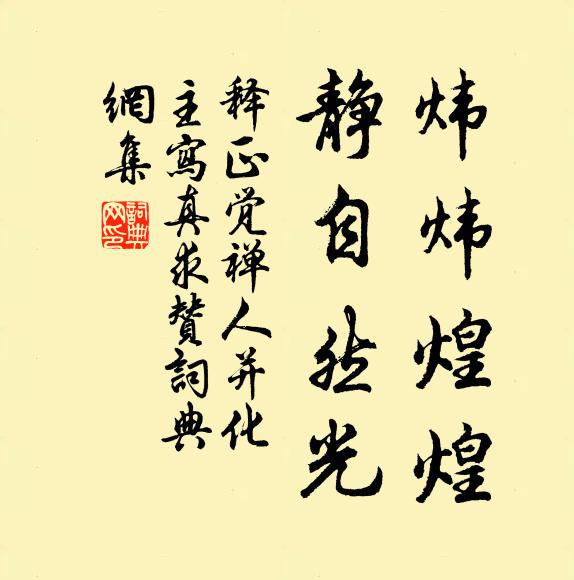 炜炜煌煌
静自然光
释正觉禅人并化
主寫真求贊詞典
網集
詞典
网印